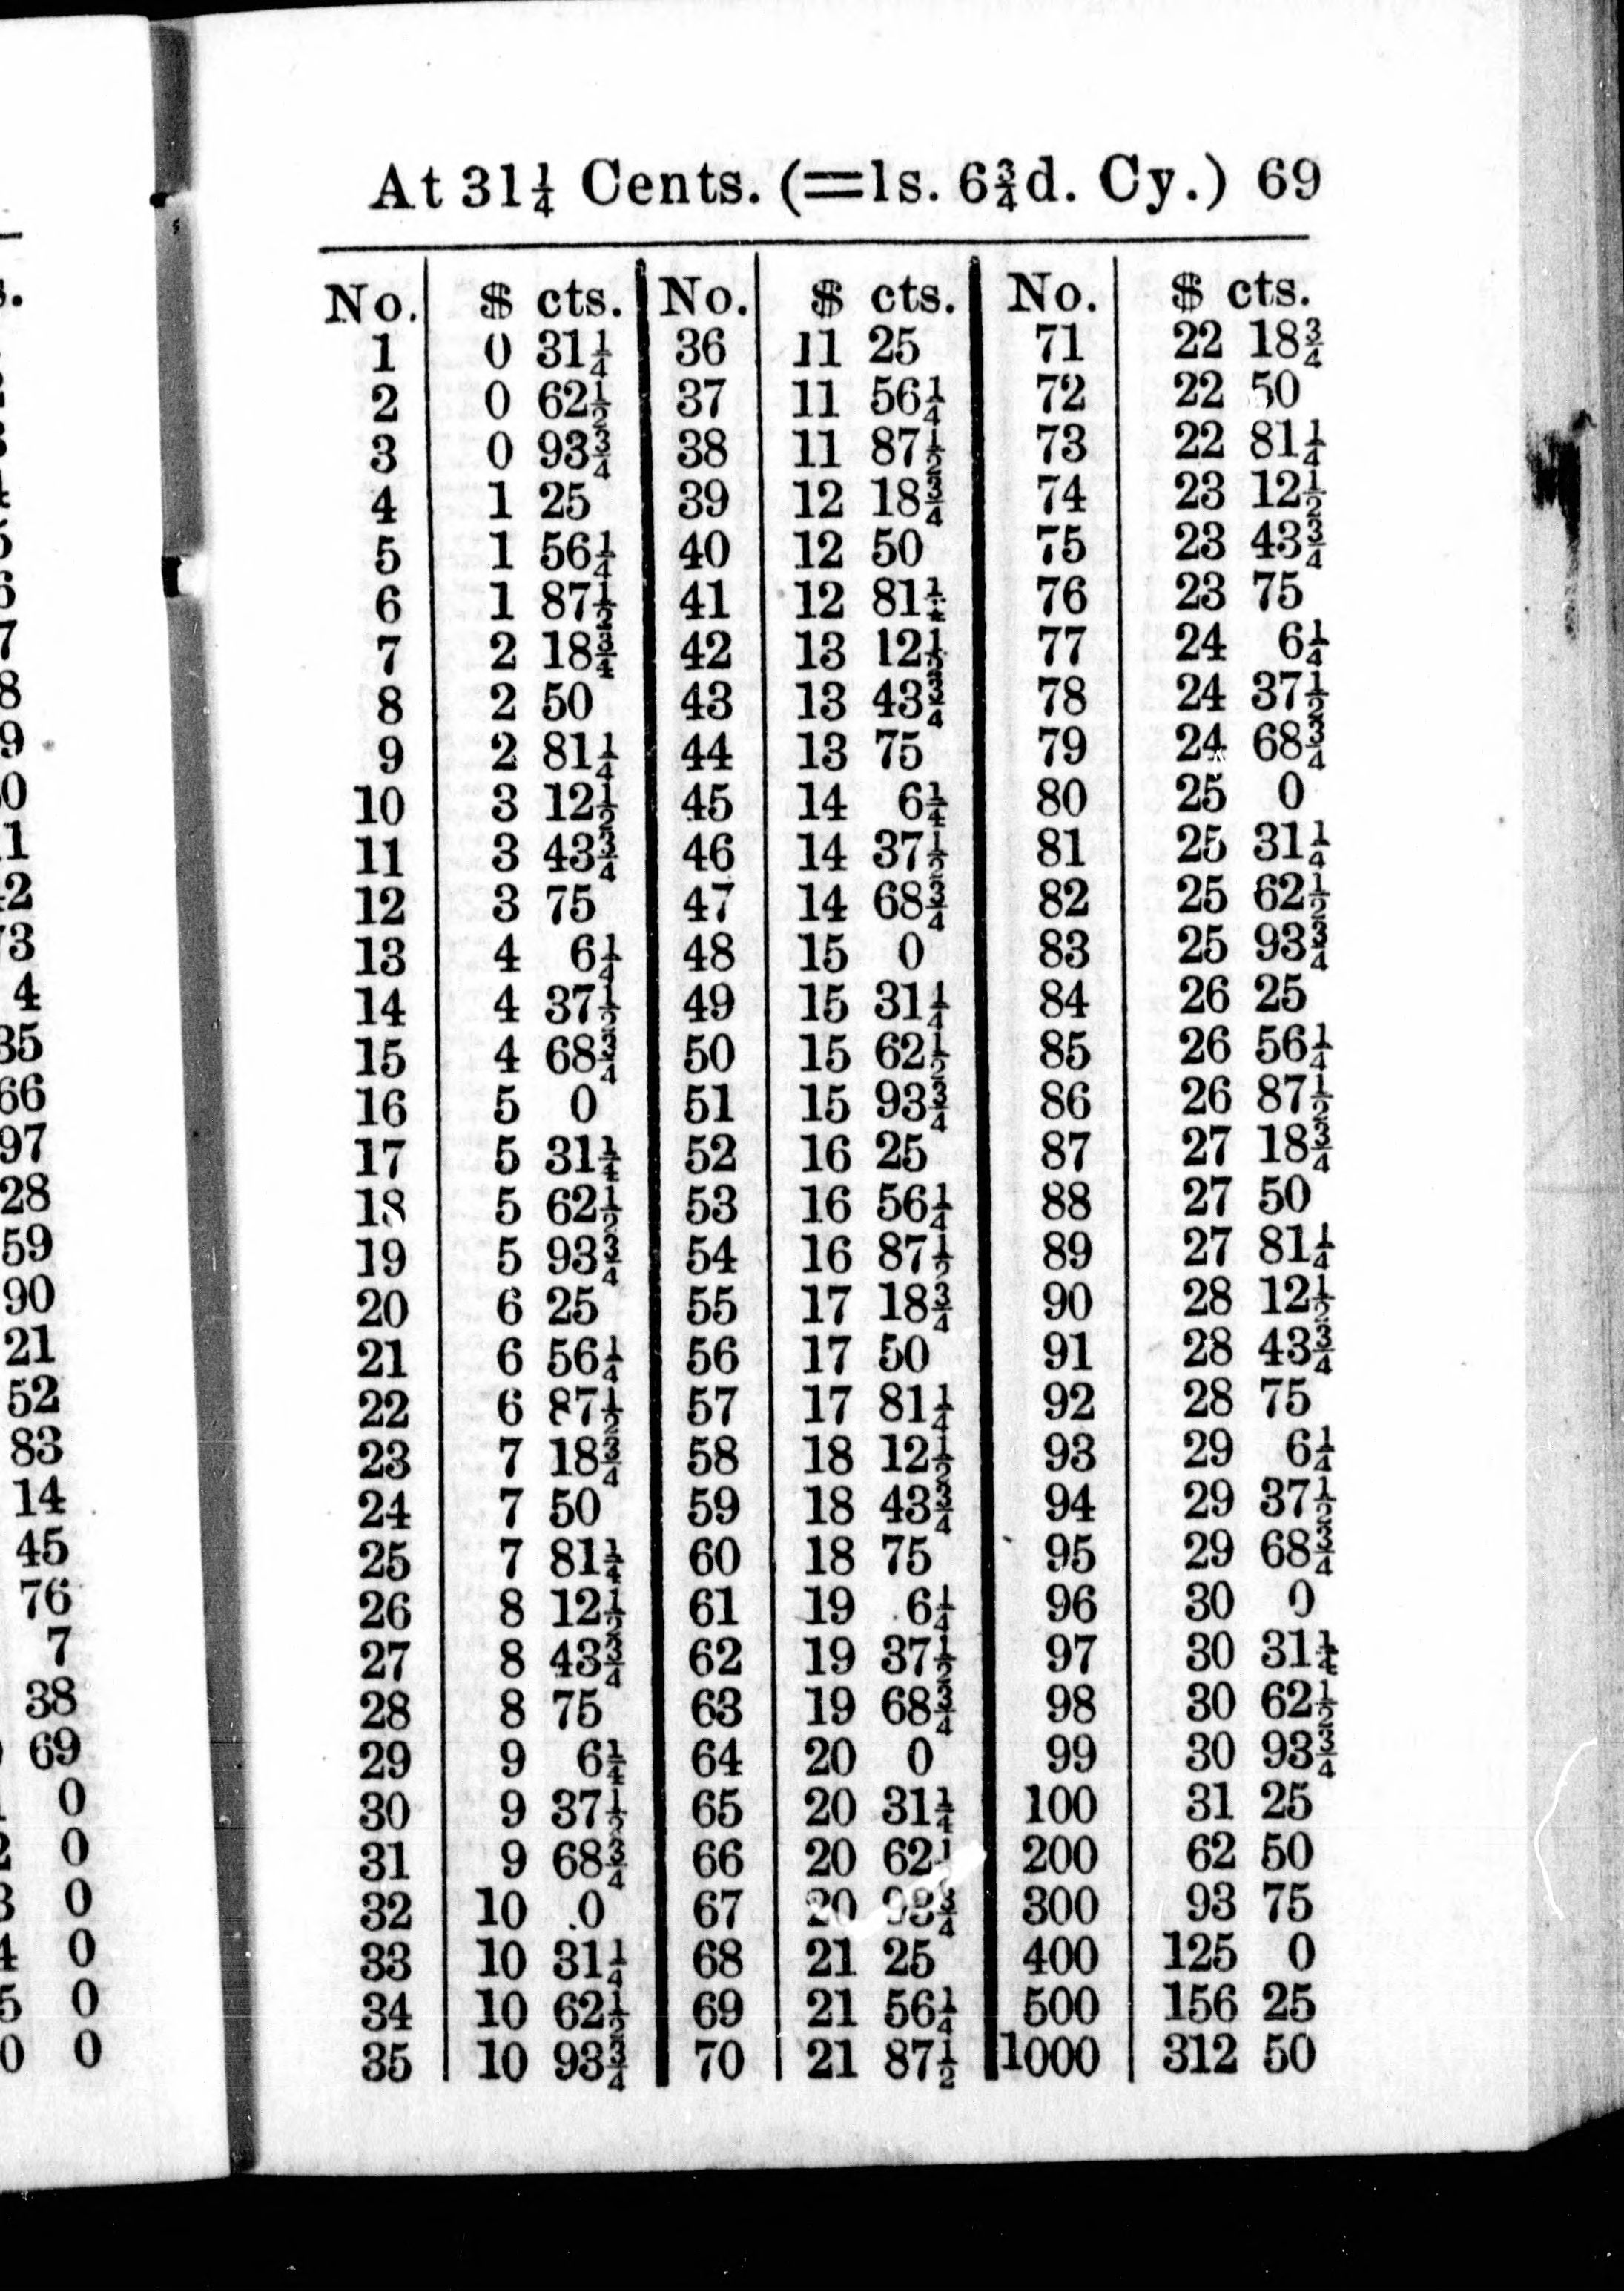 At 31¼ Cents. (=1s. 6¾d. Cy.) 69
No. $ cts. No. $ cts. No. $ cts.
1 0 31¼ 36 11 25 71 22 18¾
2 0 62½ 37 11 56¼ 72 22 50
3 0 93¾ 38 11 87½ 73 22 81¼
4 1 25 39 12 18¾ 74 23 12½
5 1 56¼ 40 12 50 75 23 43¾
6 1 87½ 41 12 81¼ 76 23 75
7 2 18¾ 42 13 12½ 77 24 6¼
8 2 50 43 13 43¾ 78 24 37½
9 2 81¼ 44 13 75 79 24 68¾
10 3 12½ 45 14 6¼ 80 25 0
11 3 43¾ 46 14 37½ 81 25 31¼
12 3 75 47 14 68¾ 82 25 62½
13 4 6¼ 48 15 0 83 25 93¾
14 4 37½ 49 15 31¼ 84 26 25
15 4 68¾ 50 15 62½ 85 26 56¼
16 5 0 51 15 93¾ 86 26 87½
17 5 31¼ 52 16 25 87 27 18¾
18 5 62½ 53 16 56¼ 88 27 50
19 5 93¾ 54 16 87½ 89 27 81¼
20 6 25 55 17 18¾ 90 28 12½
21 6 56¼ 56 17 50 91 28 43¾
22 6 87½ 57 17 81¼ 92 28 75
23 7 18¾ 58 18 12½ 93 29 6¼
24 7 50 59 18 43¾ 94 29 37½
25 7 81¼ 60 18 75 95 29 68¾
26 8 12½ 61 19 6¼ 96 30 0
27 8 43¾ 62 19 37½ 97 30 31¼
28 8 75 63 19 68¾ 98 30 62½
29 9 6¼ 64 20 0 99 30 93¾
30 9 37½ 65 20 31¼ 100 31 25
31 9 68¾ 66 20 62½ 200 62 50
32 10 0 67 20 93¾ 300 93 75
33 10 31¼ 68 21 25 400 125 0
34 10 62½ 69 21 56¼ 500 156 25
35 10 93¾ 70 21 87½ 1000 312 50